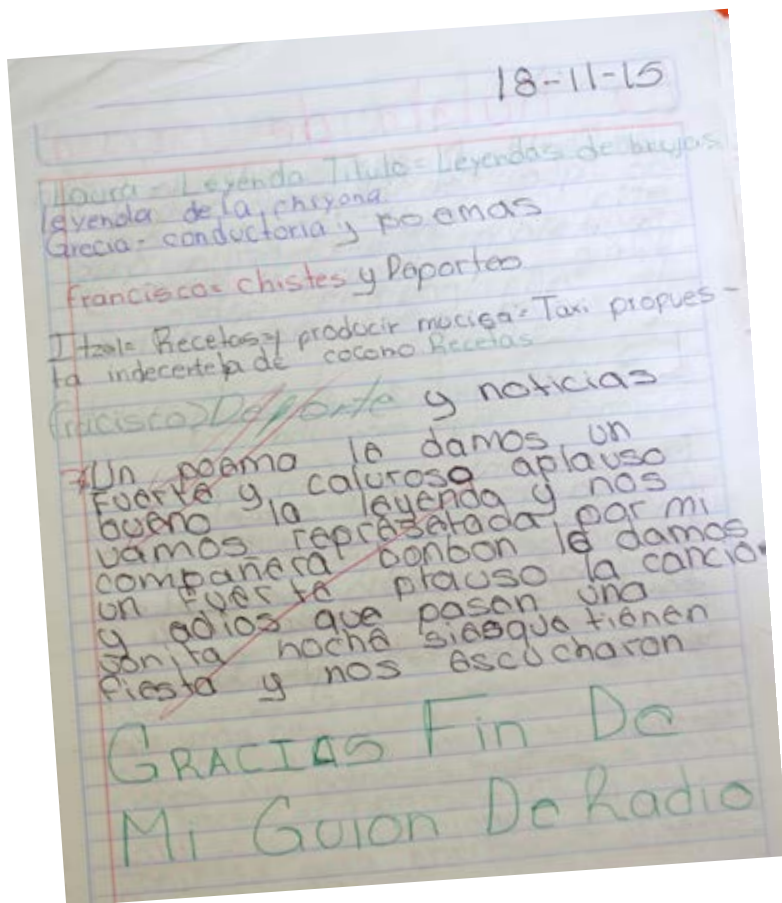 18-11-15
Laura = Leyenda Titulo = Leyendas de brujas
leyenda de la chiyona
Grecia = conductoria y poemas
Francisco = chistes y Deportes
Itzel = Recetas y producir mucica = Taxi propues-
ta indecente de cocono Recetas
Fracisco) Deporte y noticias
Un poema le damos un
fuerte y caluroso aplauso
bueno la leyenda y nos
vamos represetada por mi
compañera bonbon le damos
un fuerte plauso la cancion
y adios que pasen una
bonita noche siesque tienen
fiesta y nos escucharon
GRACIAS Fin De
Mi GUION De Radio